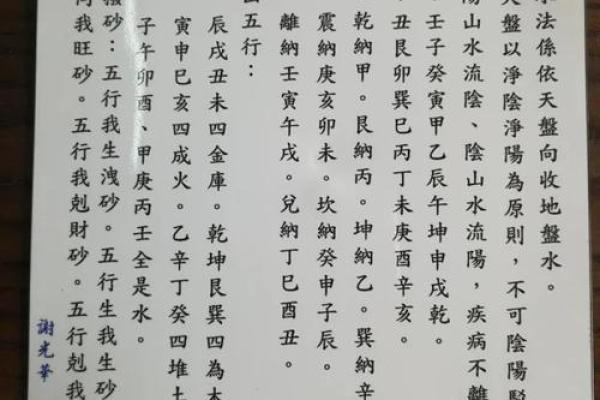 法係依天盤向收地盤水。
天盤以淨陰淨陽為原則，不可陰陽駁
陽山水流陰、陰山水流陽，疾病不離
壬子癸寅甲乙辰午坤申戌乾。
丑艮卯巽巳丙丁未庚酉辛亥。
乾納甲。艮納丙。坤納乙。巽納辛
震納庚亥卯未。坎納癸申子辰。
離納壬寅午戌。兌納丁巳酉丑。
五行：
辰戌丑未四金庫。乾坤艮巽四為木
寅申巳亥四成火。乙辛丁癸四堆土
子午卯酉、甲庚丙壬全是水。
撥砂：五行我生洩砂。五行生我生砂
我旺砂。五行我剋財砂。五行剋我
謝光華